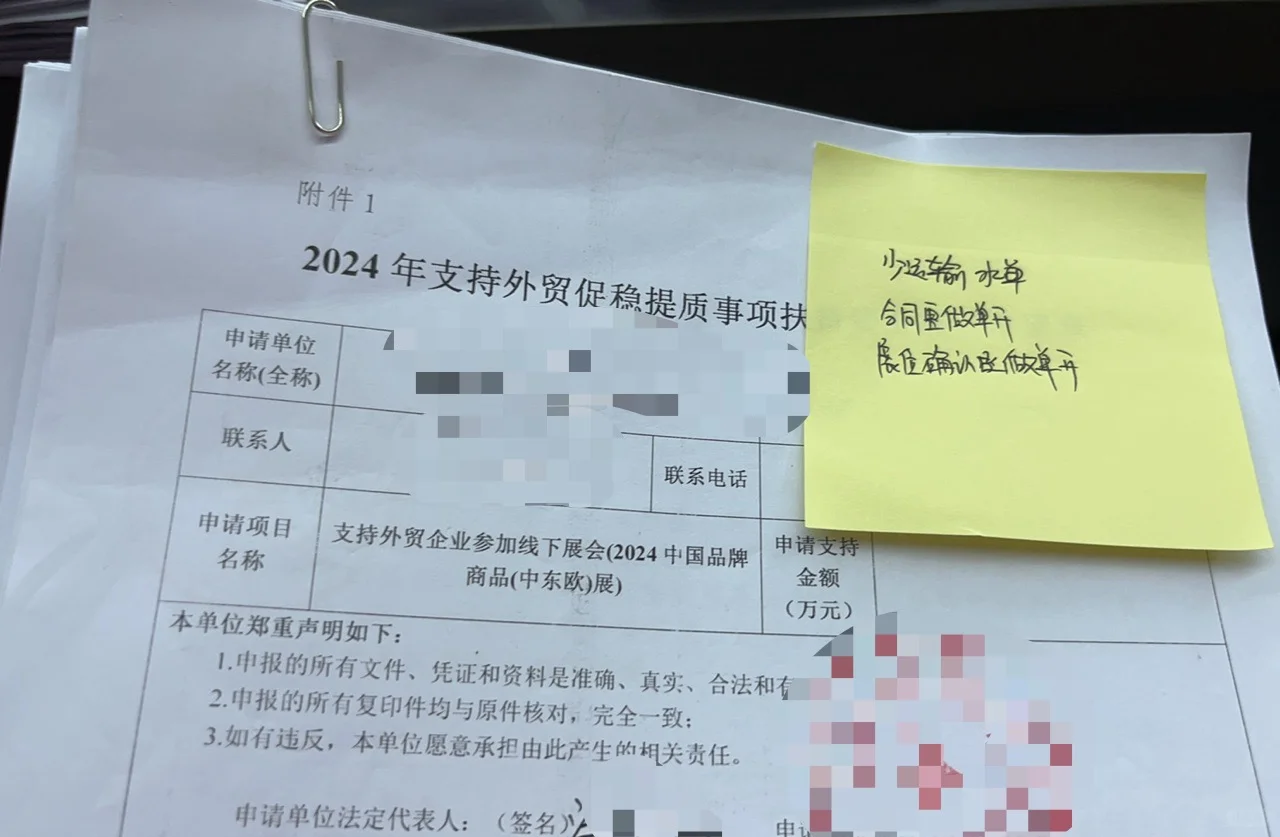 附件 1
2024 年支持外贸促稳提质事项扶
少运输水单
合同要做单开
展位确认要做单开
申请单位
名称(全称)
联系人
联系电话
申请项目
名称
支持外贸企业参加线下展会(2024 中国品牌
商品(中东欧)展)
申请支持
金额
（万元）
本单位郑重声明如下：
1.申报的所有文件、凭证和资料是准确、真实、合法和有
2.申报的所有复印件均与原件核对，完全一致；
3.如有违反，本单位愿意承担由此产生的相关责任。
申请单位法定代表人：（签名）
申请